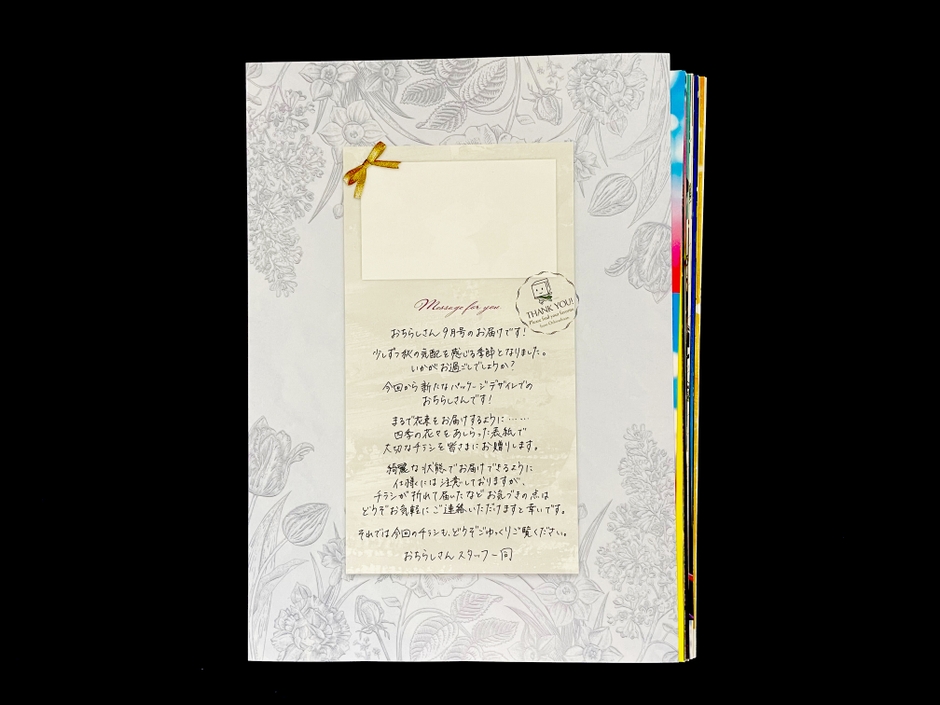 Message for you
THANK YOU!
Please find your favorites
おちらしさん9月号のお届けです！
少しずつ秋の気配を感じる季節となりました。
いかがお過ごしでしょうか？
今回から新たなパッケージデザインでの
おちらしさんです！
まるで花束をお届けするように……
四季の花々をあしらった表紙で
大切なチラシを皆さまにお贈りします。
綺麗な状態でお届けできるように
仕様には注意しておりますが、
チラシが折れて届いたなどお気づきの点は
どうぞお気軽にご連絡いただけますと幸いです。
それでは今回のチラシも、どうぞごゆっくりご覧ください。
おちらしさんスタッフ一同